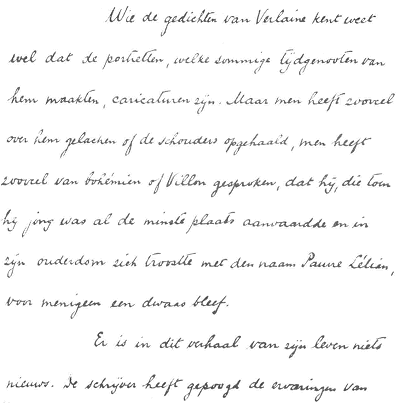 Wie de gedichten van Verlaine kent weet
wel dat de portretten, welke sommige tijdgenooten van
hem maakten, caricaturen zijn. Maar men heeft zooveel
over hem gelachen of de schouders opgehaald, men heeft
zooveel van bohémien of Villon gesproken, dat hij, die toen
hij jong was al de minste plaats aanvaardde en in
zijn ouderdom zich troostte met den naam Pauvre Lélian,
voor menigeen een dwaas bleef.
Er is in dit verhaal van zijn leven niets
nieuws. De schrijver heeft gepoogd de ervaringen van